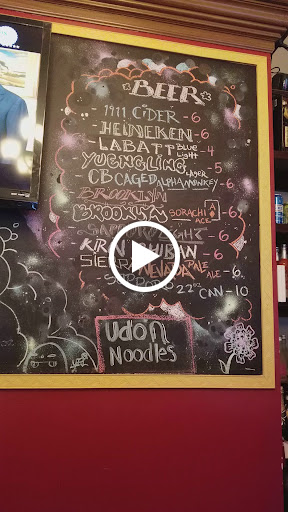 BEER
- 1911 CiDER - 6
- HEINEKEN - 6
- LABATT Blue Light - 4
- YUENGLING LAGER - 5
- CB CAGED ALPHA MONKEY - 6
- BROOKLYN
- BROOKLYN SORACHI ACE - 6
- KIRIN ICHIBAN - 6
- SIERRA NEVADA PALE ALE - 6
- SAPPORO 22oz CAN - 10
udon
Noodles